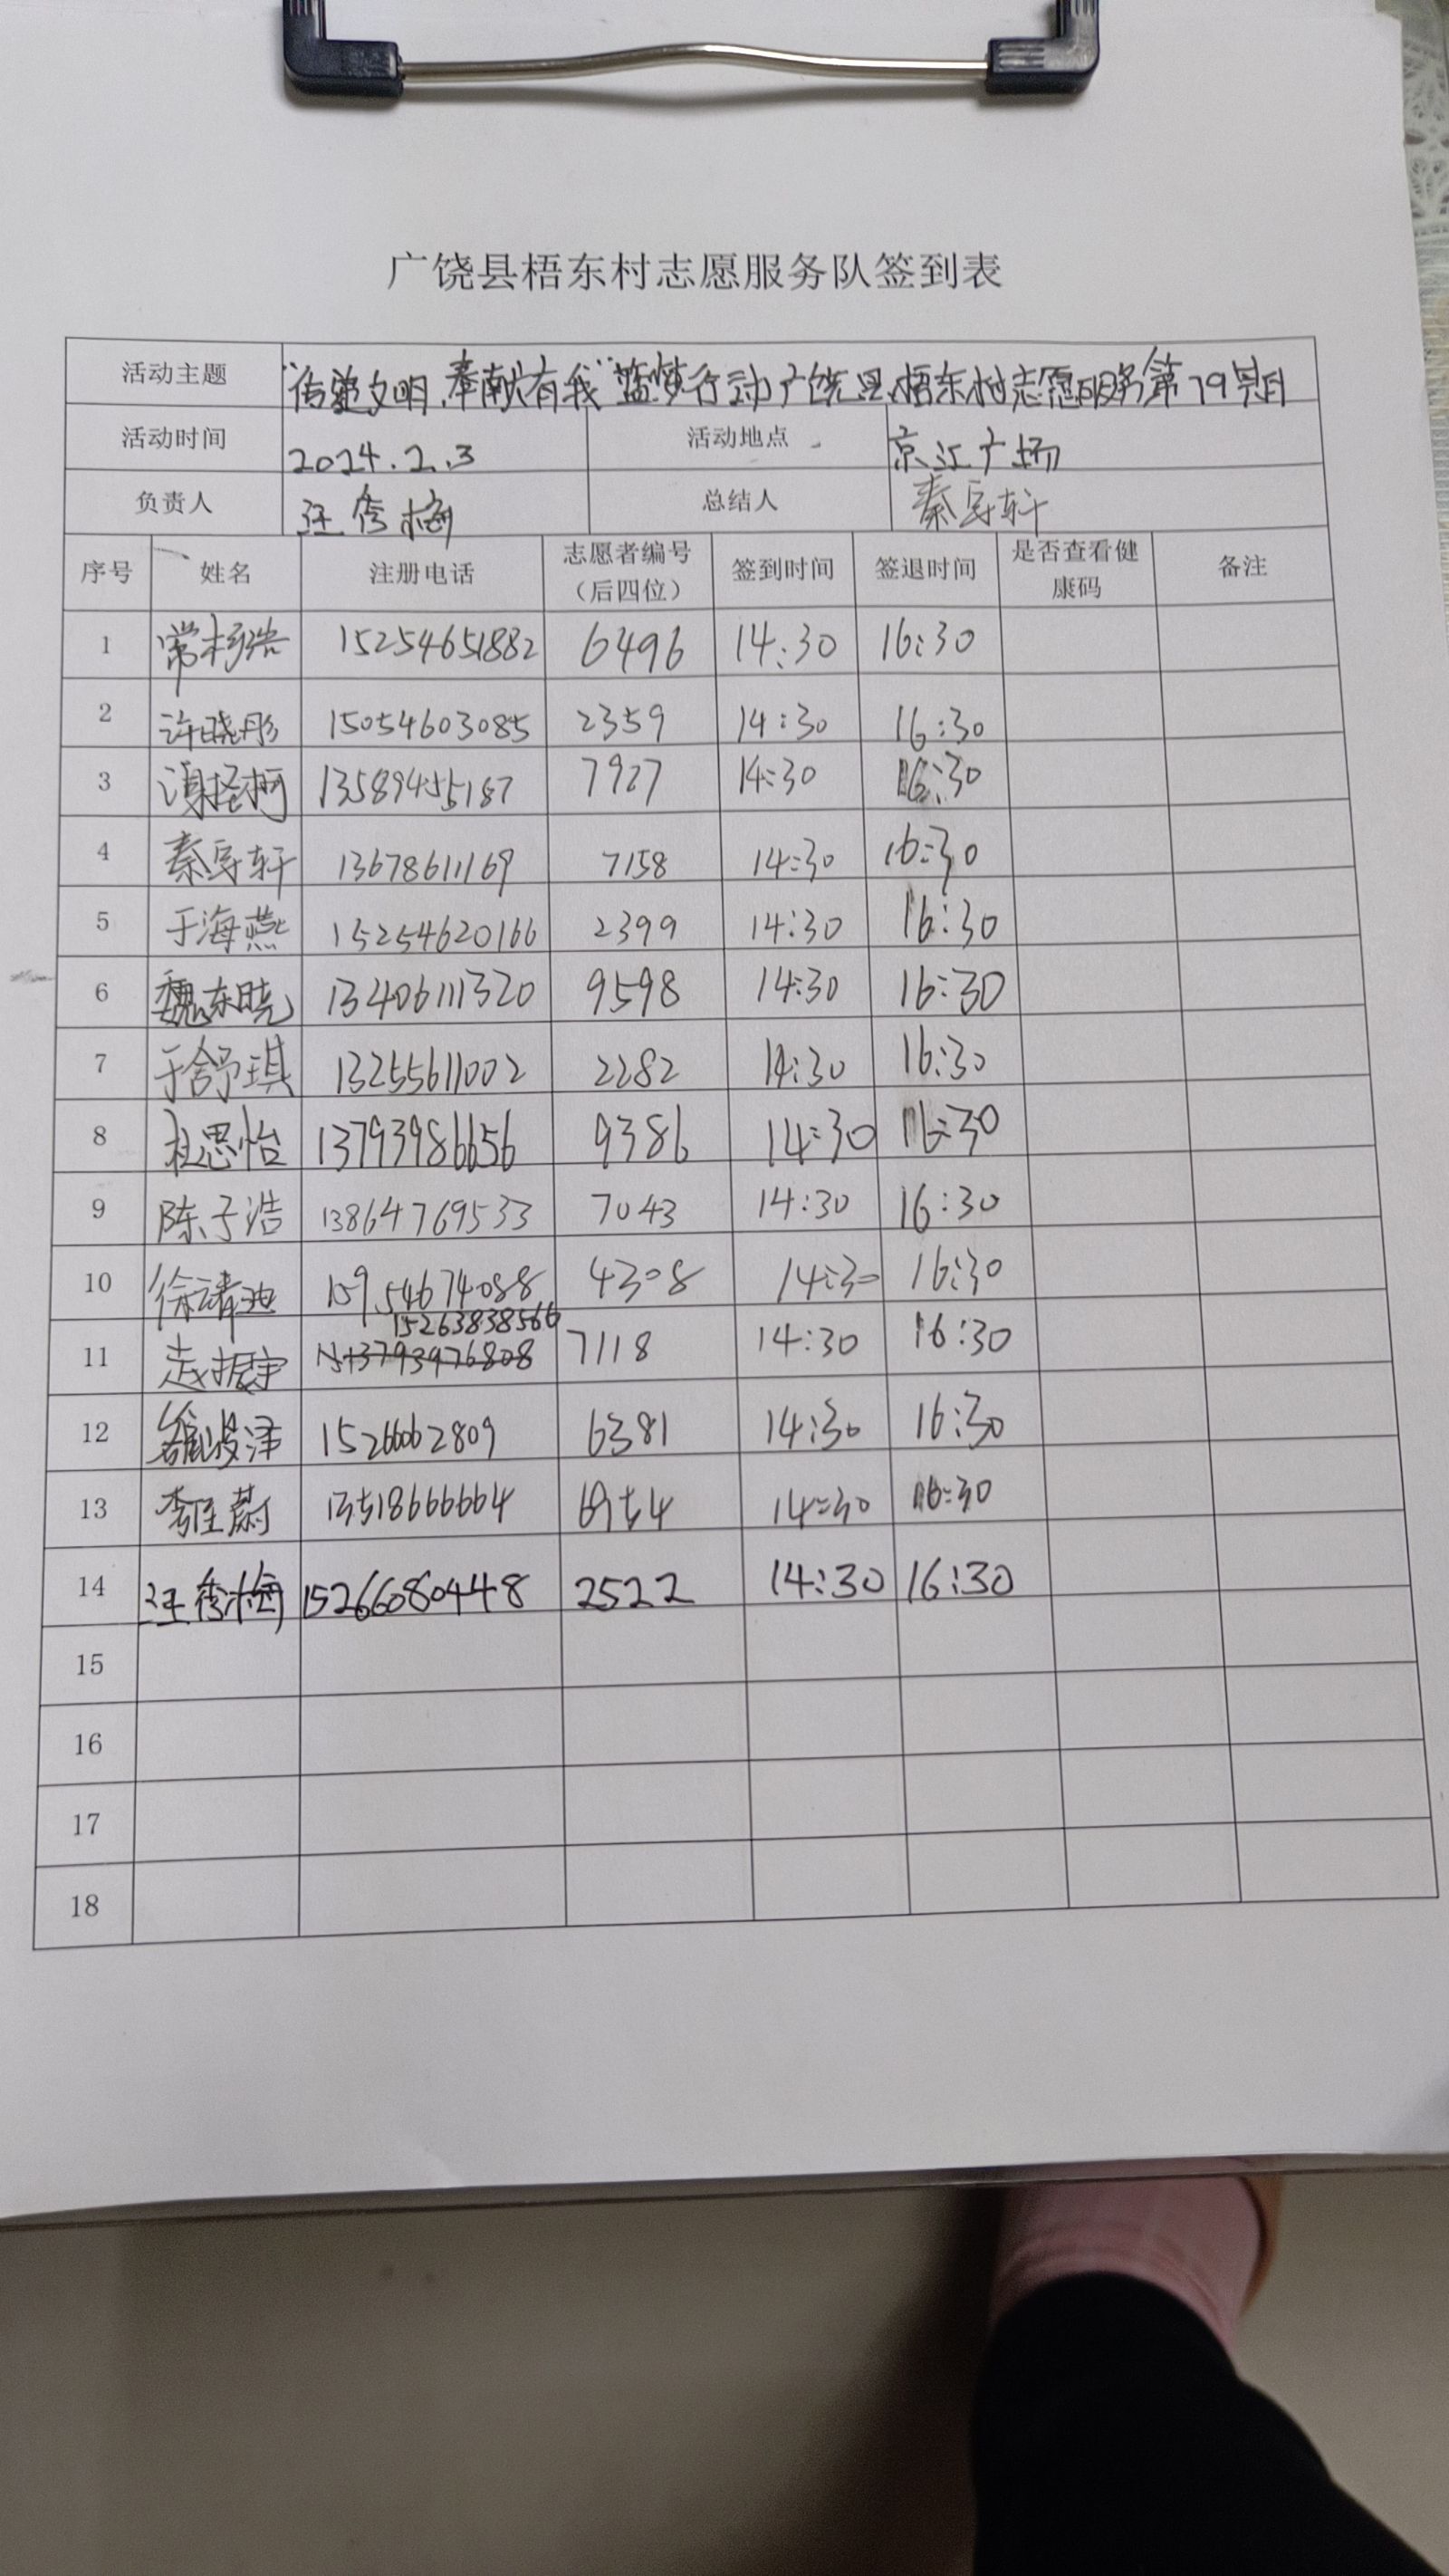 广饶县梧东村志愿服务队签到表
活动主题 “传递文明,奉献有我”蓝梦行动广饶县梧东村志愿服务第79期
活动时间 2024.2.3 活动地点 京江广场
负责人 汪秀梅 总结人 秦
序号 姓名 注册电话 志愿者编号(后四位) 签到时间 签退时间 是否查看健康码 备注
1 常 15254651882 6496 14:30 16:30
2 许晓彤 15054603085 2359 14:30 16:30
3 13589455187 7927 14:30 16:30
4 秦 13678611169 7158 14:30 16:30
5 于海燕 15254620166 2399 14:30 16:30
6 魏东晓 13406111320 9598 14:30 16:30
7 于舒琪 13255611002 2282 14:30 16:30
8 杜思怡 13793986656 9386 14:30 16:30
9 陈子浩 13864769533 7043 14:30 16:30
10 徐 15954674088 4308 14:30 16:30
11 赵振宇 15263838566 7118 14:30 16:30
12 15266062809 6381 14:30 16:30
13 李 14:30 16:30
14 汪秀梅 15266080448 2522 14:30 16:30
15
16
17
18